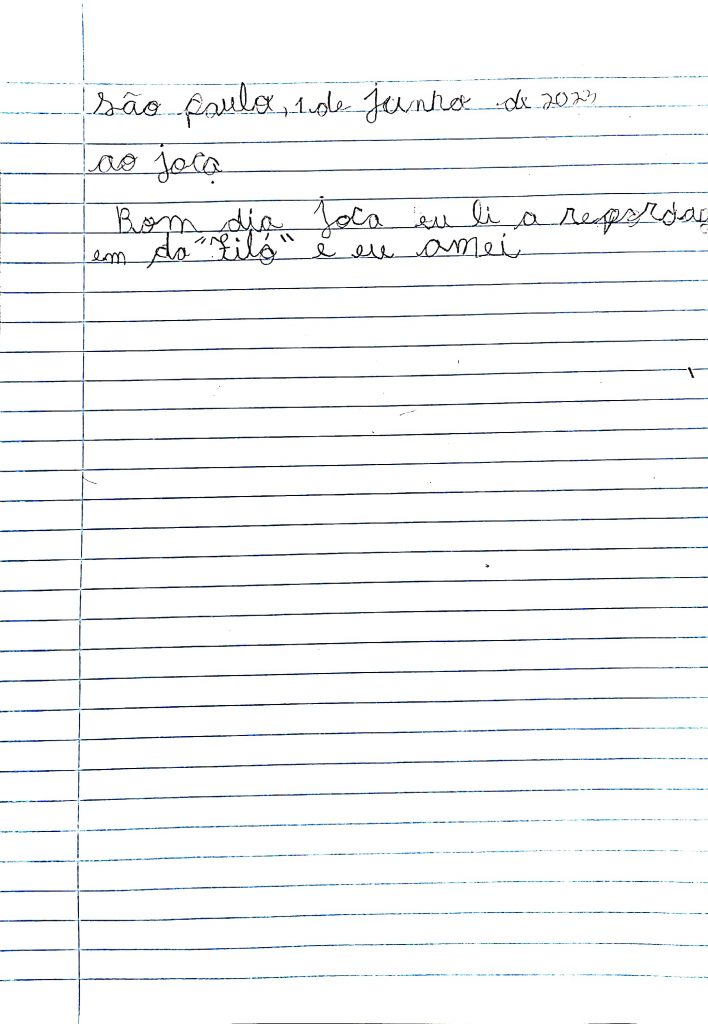 são paulo, 1 de junho de 2023
ao joca
Bom dia joca eu li a repordag
em da "Filó" e eu amei